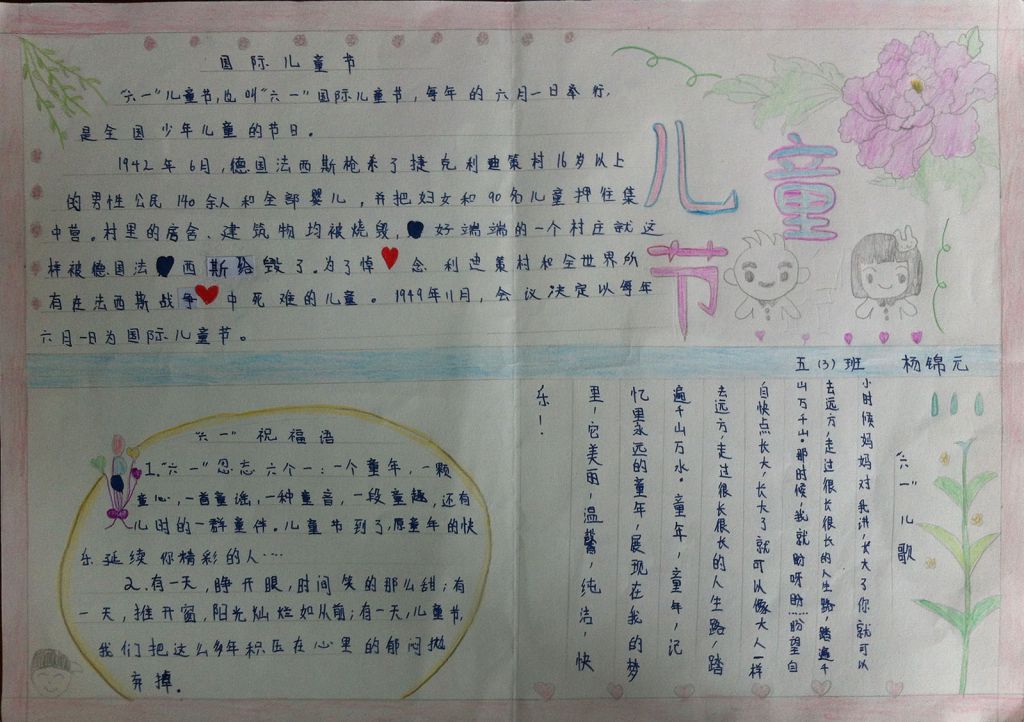 国际儿童节
"六一"儿童节,也叫"六一"国际儿童节,每年的六月一日举行,
是全国少年儿童的节日。
1942年6月,德国法西斯枪杀了捷克利迪策村16岁以上
的男性公民140余人和全部婴儿,并把妇女和90名儿童押往集
中营。村里的房舍、建筑物均被烧毁,好端端的一个村庄就这
样被德国法西斯给毁了。为了悼念利迪策村和全世界所
有在法西斯战争中死难的儿童。1949年11月,会议决定以每年
六月一日为国际儿童节。
儿童
节
五(3)班 杨锦元
"六一"祝福语
1."六一"忍志六个一:一个童年,一颗
童心,一首童谣,一种童音,一段童趣,还有
儿时的一群童伴。儿童节到了,愿童年的快
乐延续你精彩的人…
2.有一天,睁开眼,时间笑的那么甜;有
一天,推开窗,阳光灿烂如从前;有一天,儿童节,
我们把这么多年积压在心里的郁闷抛
弃掉。
六一儿歌
小时候妈妈对我讲,长大了你就可以
去远方,走过很长很长的人生路,踏遍千
山万千山。那时候,我就盼呀盼……盼望自
自快点长大,长大了就可以像大人一样
去远方,走过很长很长的人生路,踏
遍千山万水。童年,童年,记
忆里永远的童年,展现在我的梦
里,它美丽,温馨,纯洁,快
乐!